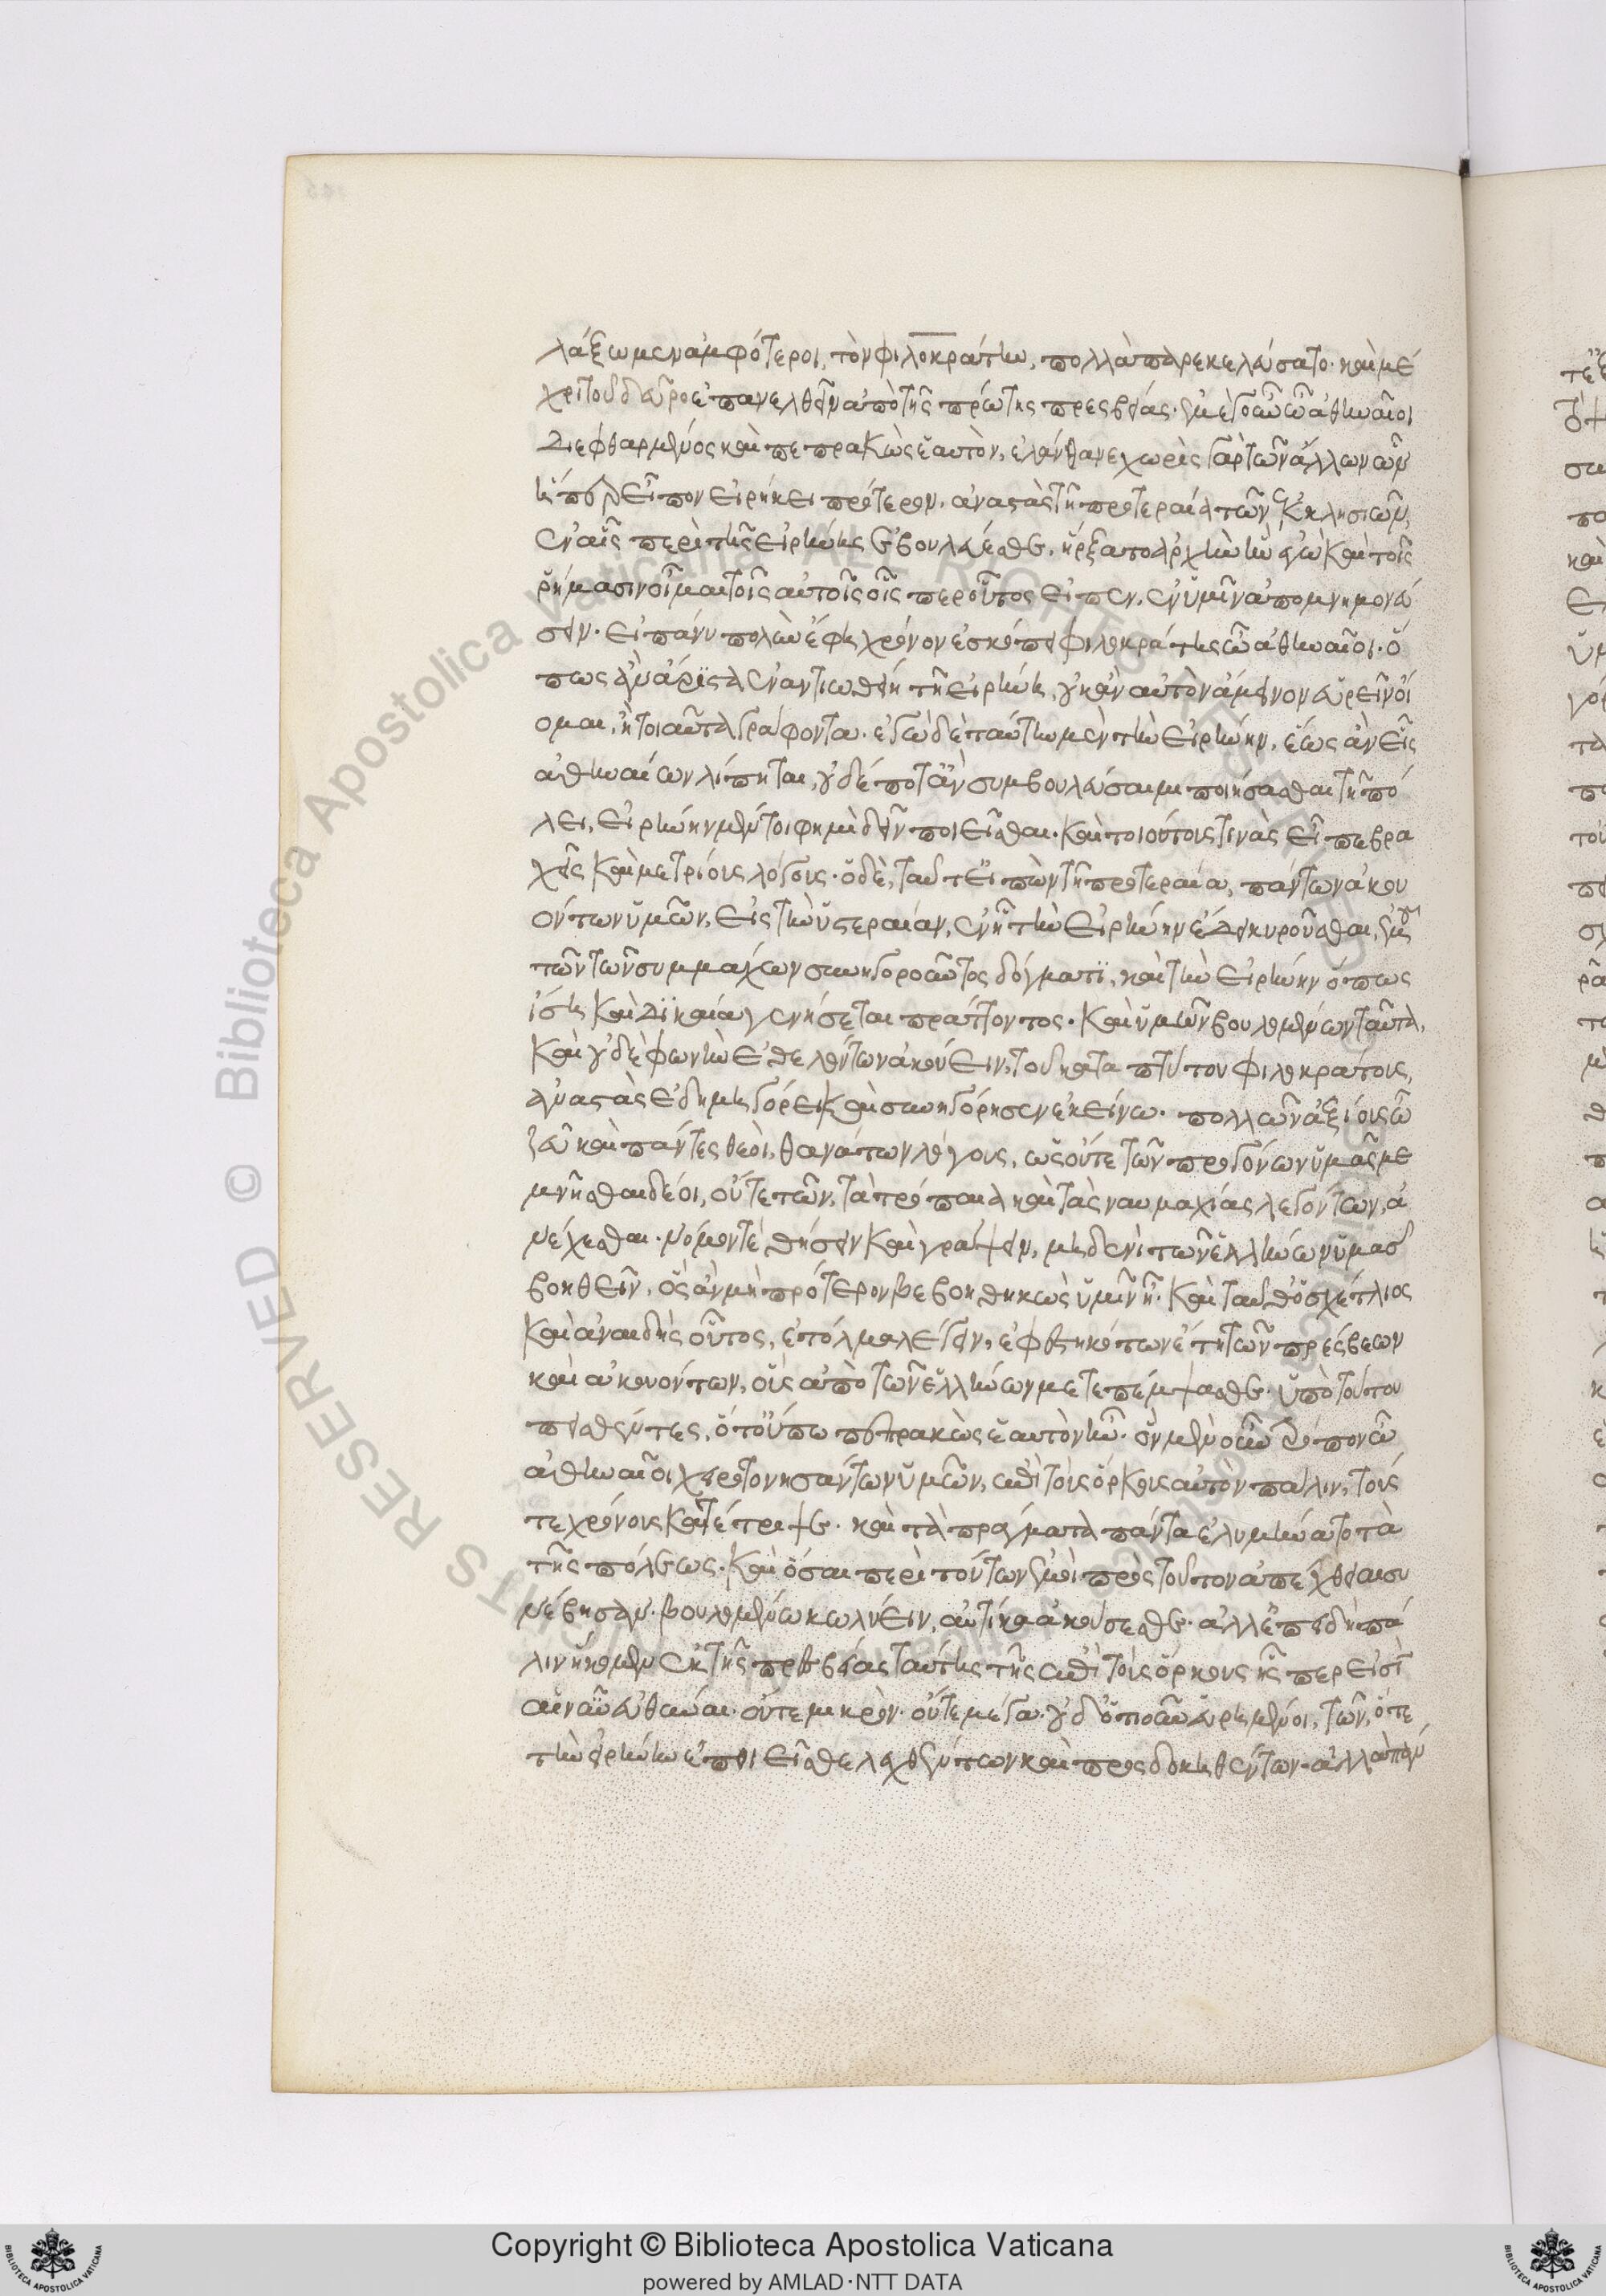 λάξωμεν ἀμφότεροι, τὸν φιλοκράτην, πολλὰ παρεκελεύσατο· καὶ μέ
χρι τοῦ δεῦρο ἐπανελθεῖν ἀπὸ τῆς πρώτης πρεσβείας· ἐμὲ γοῦν ὦ ἀθηναῖοι
διεφθαρμένος καὶ πεπρακὼς ἑαυτὸν, ἐλάνθανε χωρὶς γὰρ τῶν ἄλλων ὧν
εἶπον εἰρήκει πρότερον. ἀναστὰς τῇ προτεραίᾳ τῶν ἐκκλησιῶν,
ἐν αἷς περὶ τῆς εἰρήνης ἐβουλεύεσθε, ἤρξατο ἀρχὴν ἣν ἐγὼ καὶ τοῖς
ῥήμασιν οἶμαι τοῖς αὐτοῖς οἷς περ οὗτος εἶπεν, ἐν ὑμῖν ἀπομνημονεύ
σειν· εἰ πάνυ πολὺν ἔφη χρόνον ἐσκόπει φιλοκράτης ὦ ἀθηναῖοι· ὅ
πως ἂν ἄριστα ἐναντιωθείη τῇ εἰρήνῃ, οὐκ ἂν αὐτὸν ἄμεινον εὑρεῖν οἴ
ομαι, ἢ τοιαῦτα γράφοντα· ἐγὼ δὲ ταύτην μὲν τὴν εἰρήνην, ἕως ἂν εἷς
ἀθηναίων λίπηται, οὐδέποτ' ἂν συμβουλεύσαιμι ποιήσασθαι τῇ πό
λει, εἰρήνην μέντοι φημὶ δεῖν ποιεῖσθαι· καὶ τοιούτους τινὰς εἶπε βρα
χεῖς καὶ μετρίους λόγους· ὁ δὲ, ταῦτ' εἰπὼν τῇ προτεραίᾳ, πάντων ἀκου
όντων ὑμῶν, εἰς τὴν ὑστεραίαν, ἐν ᾗ τὴν εἰρήνην ἔδει κυροῦσθαι, ἐμοῦ
τῶν τῶν συμμάχων συνηγοροῦντος δόγματι, καὶ τὴν εἰρήνην ὅπως
ἴση καὶ δικαία γενήσεται πράττοντος· καὶ ὑμῶν βουλομένων ταῦτα,
καὶ οὐδὲ φωνὴν ἐθελόντων ἀκούειν, τοῦ κατα πτύστου φιλοκράτους,
ἀναστὰς ἐδημηγόρει καὶ συνηγόρησεν ἐκείνῳ· πολλῶν ἀξίους ὦ
ζεῦ καὶ πάντες θεοὶ, θανάτων λόγους, ὡς οὔτε τῶν προγόνων ὑμᾶς με
μνῆσθαι δέοι, οὔτε τῶν, τὰ τρόπαια καὶ τὰς ναυμαχίας λεγόντων, ἀ
νέχεσθαι· νόμον τε θήσειν καὶ γράψειν, μηδενὶ τῶν ἑλλήνων ὑμᾶς
βοηθεῖν, ὃς ἂν μὴ πρότερον βεβοηθηκὼς ὑμῖν ᾖ· καὶ ταῦθ' ὁ σχέτλιος
καὶ ἀναιδὴς οὗτος, ἐτόλμα λέγειν, ἐφεστηκότων ἔτι τῶν πρέσβεων
καὶ ἀκουόντων, οὓς ἀπὸ τῶν ἑλλήνων μετεπέμψασθε· ὑπὸ τούτου
πεισθέντες, ὅτ' οὔπω πεπρακὼς ἑαυτὸν ἦν· ὃν μὲν οὖν τρόπον ὦ
ἀθηναῖοι χειροτονησάντων ὑμῶν, ἐπὶ τοὺς ὅρκους αὐτὸν πάλιν, τούς
τε χρόνους κατέτριψε· καὶ τὰ πράγματα πάντα ἐλυμήνατο τὰ
τῆς πόλεως· καὶ ὅσαι περὶ τούτων ἐμοὶ πρὸς τοῦτον ἀπέχθειαι συ
νέβησαν· βουλομένῳ κωλύειν, αὐτίκα ἀκούσεσθε· ἀλλ' ἐπειδὴ πά
λιν ἥκομεν ἐκ τῆς πρεσβείας ταύτης τῆς ἐπὶ τοὺς ὅρκους ἧς περ εἰσὶ
αἱ νῦν εὐθῦναι· οὔτε μικρὸν· οὔτε μέγα· οὐδ' ὁτιοῦν εὑρημένοι, τῶν, ὅτε
τὴν εἰρήνην ἐποιεῖσθε λεχθέντων καὶ προσδοκηθέντων· ἀλλὰ πάν